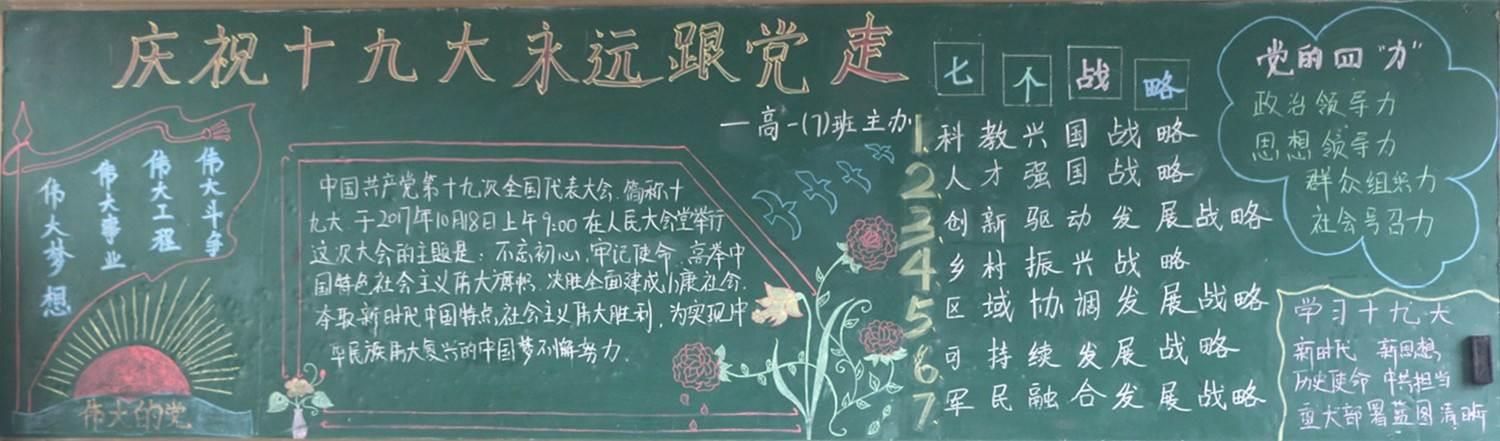 庆祝十九大永远跟党走
—高一(7)班主办
伟大斗争
伟大工程
伟大事业
伟大梦想
伟大的党
中国共产党第十九次全国代表大会,简称十
九大.于2017年10月18日上午9:00在人民大会堂举行
这次大会的主题是:不忘初心,牢记使命,高举中
国特色社会主义伟大旗帜,决胜全面建成小康社会.
夺取新时代中国特点社会主义伟大胜利,为实现中
华民族伟大复兴的中国梦不懈努力.
七个战略
1.科教兴国战略
2.人才强国战略
3.创新驱动发展战略
4.乡村振兴战略
5.区域协调发展战略
6.可持续发展战略
7.军民融合发展战略
党的四"力"
政治领导力
思想领导力
群众组织力
社会号召力
学习十九大
新时代 新思想,
历史使命 中共担当
重大部署蓝图清晰